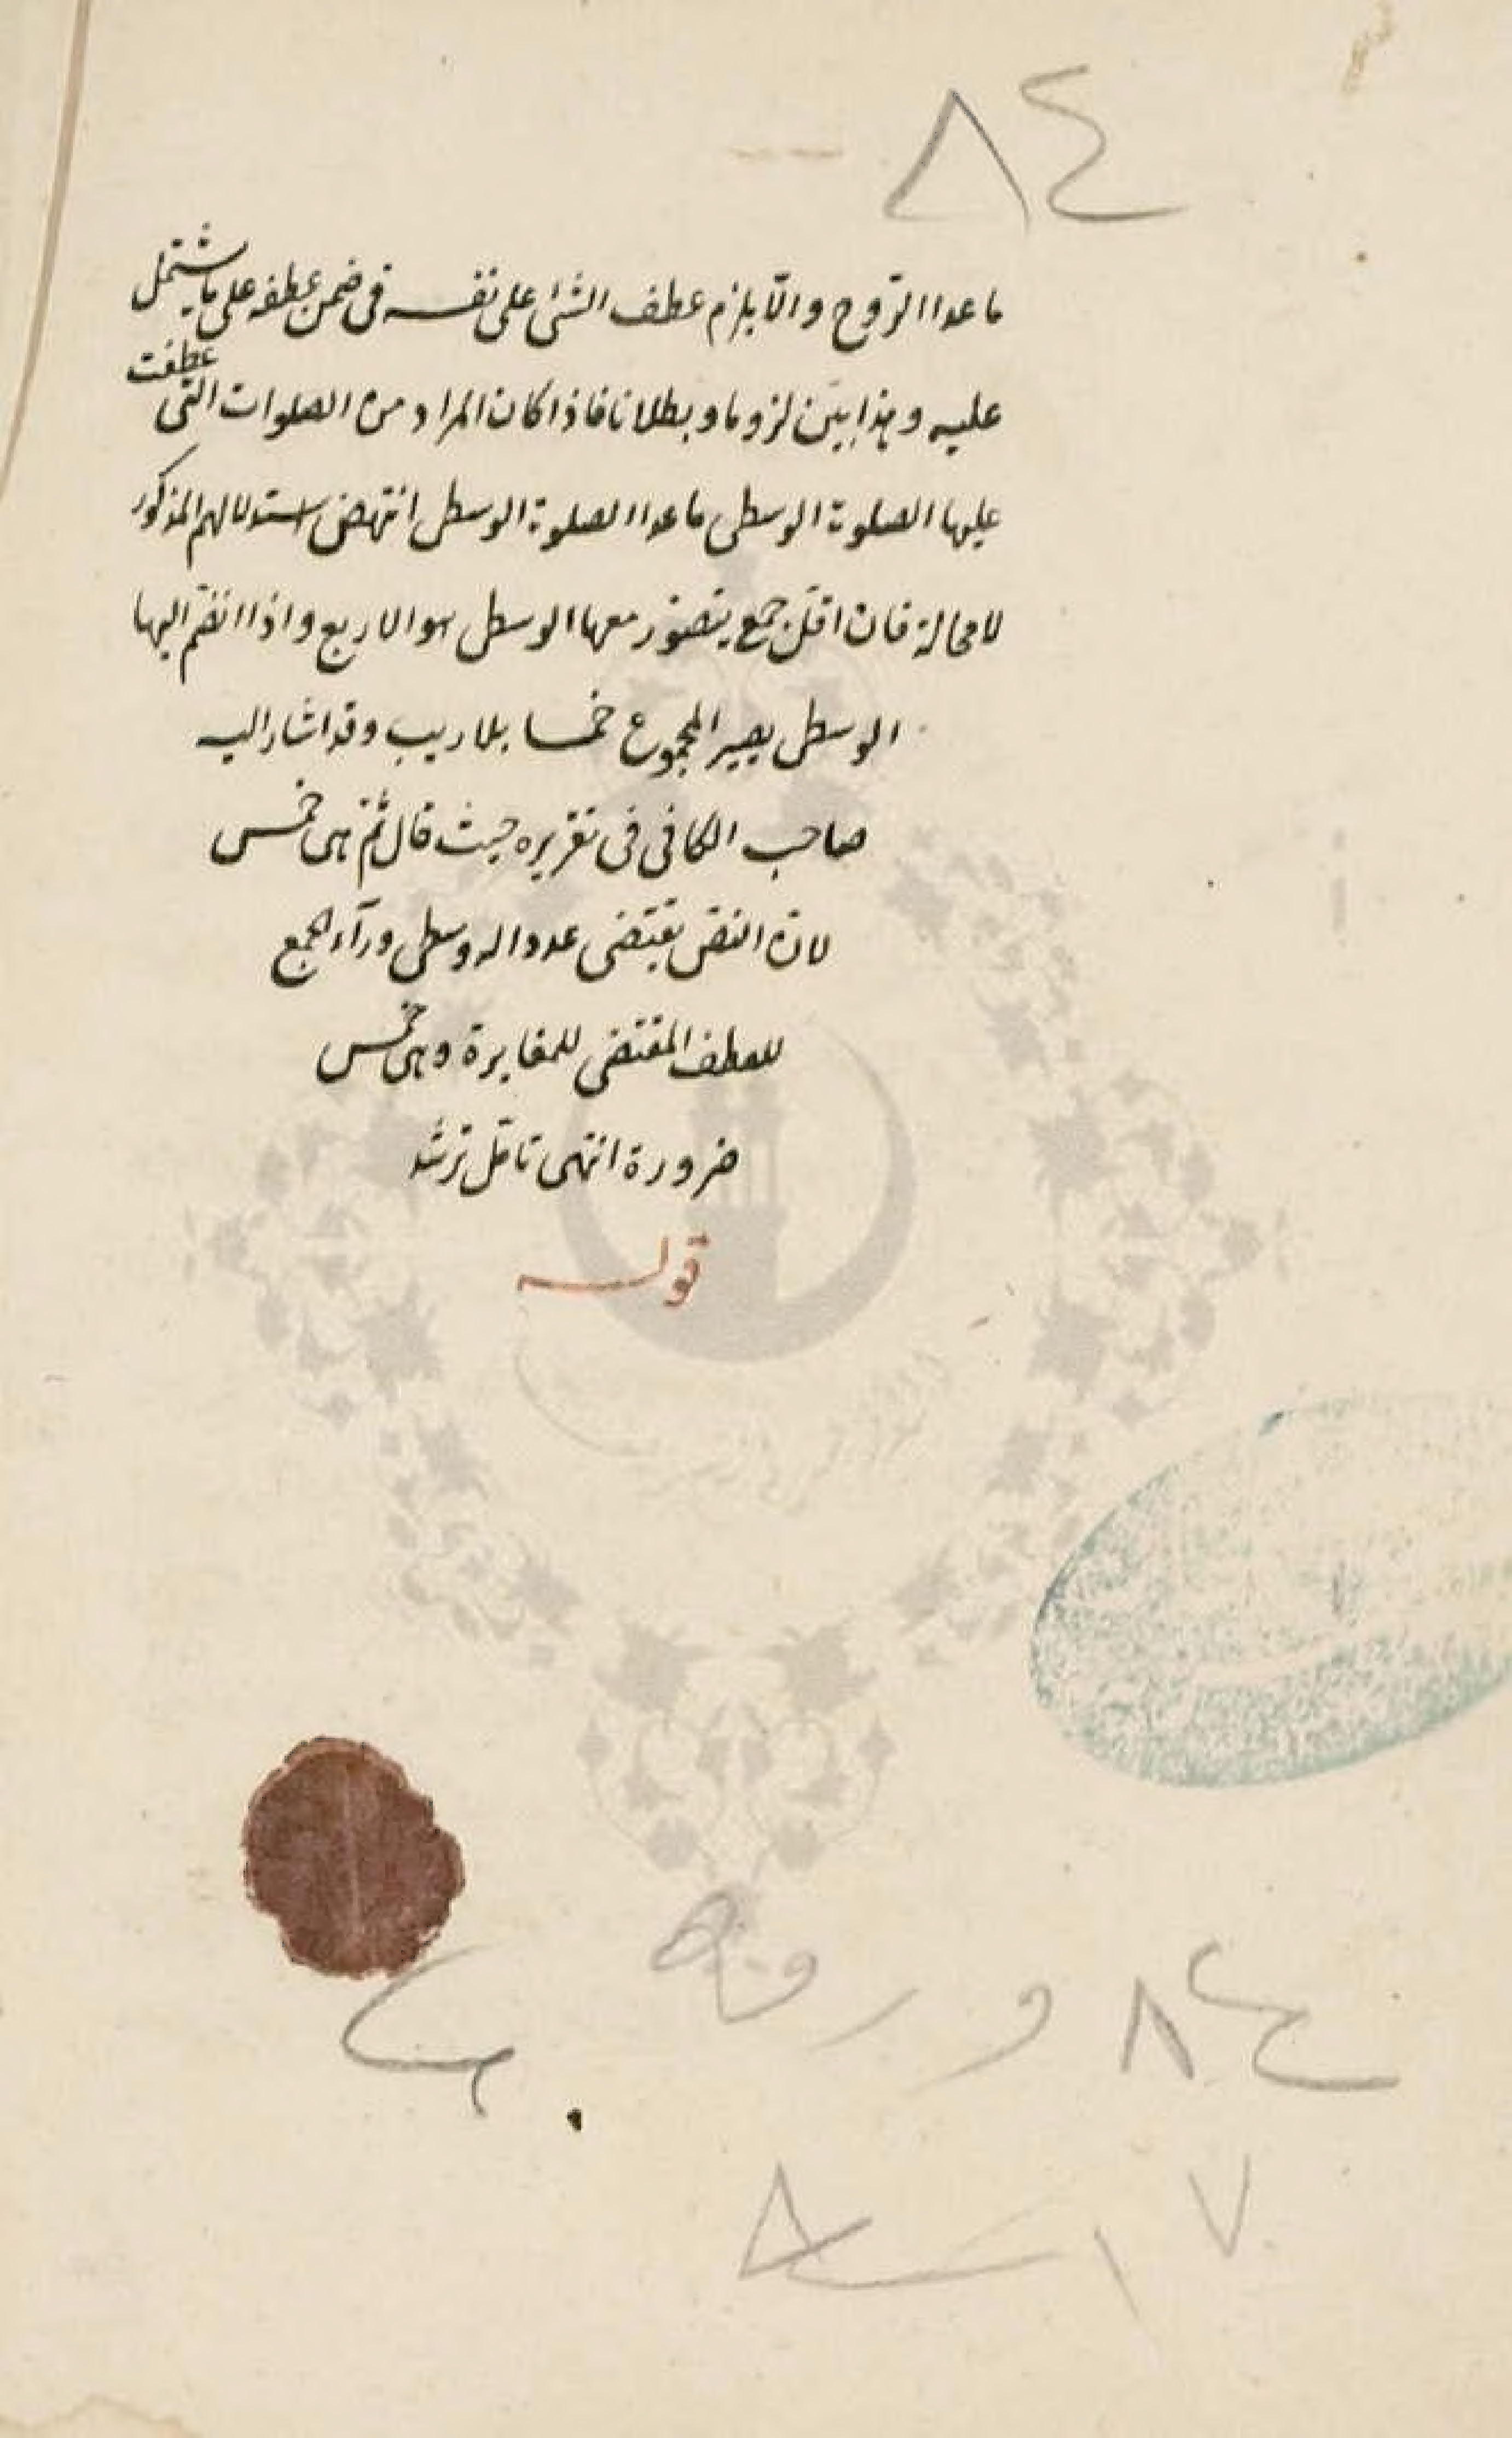 ٨٤
ما عدا الروح والّا يلزم عطف الشئ على نفسه فى ضمن عطفه على ما يشتمل
عليه وهذا بيّن لزوما وبطلانا فاذا كان المراد من الصلوات التى عطفت
عليها الصلوة الوسطى ما عدا الصلوة الوسطى انتهض استدلالهم المذكور
لا محالة فان اقلّ جمع يتصوّر معها الوسطى هو الاربع واذا انضمّ اليها
الوسطى يصير المجموع خمسا بلا ريب وقد اشار اليه
صاحب الكافى فى تقريره حيث قال ثمّ هى خمس
لانّ النصّ يقتضى عددا له وسطى ورآء الجمع
للعطف المقتضى للمغايرة وهى خمس
ضرورة انتهى تامّل ترشد
قوله
٨٤ ورقه